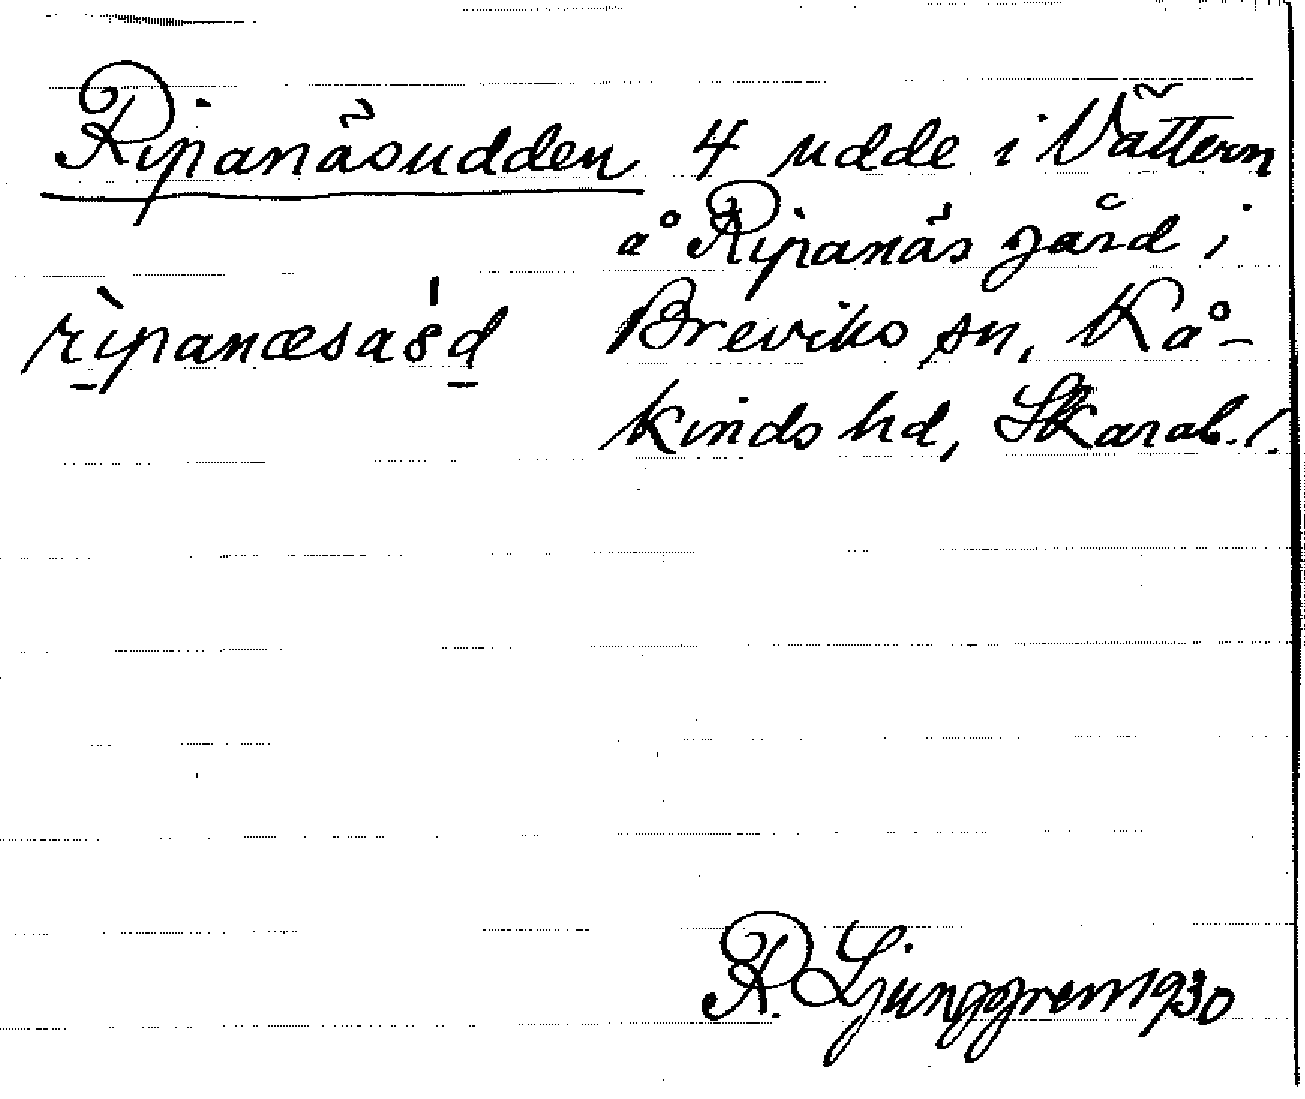 Ripanäsudden 4 udde i Vättern
å Ripanäs gård i
Breviks sn, Kå-
kinds hd, Skarab. l.
R. Ljunggren 1930